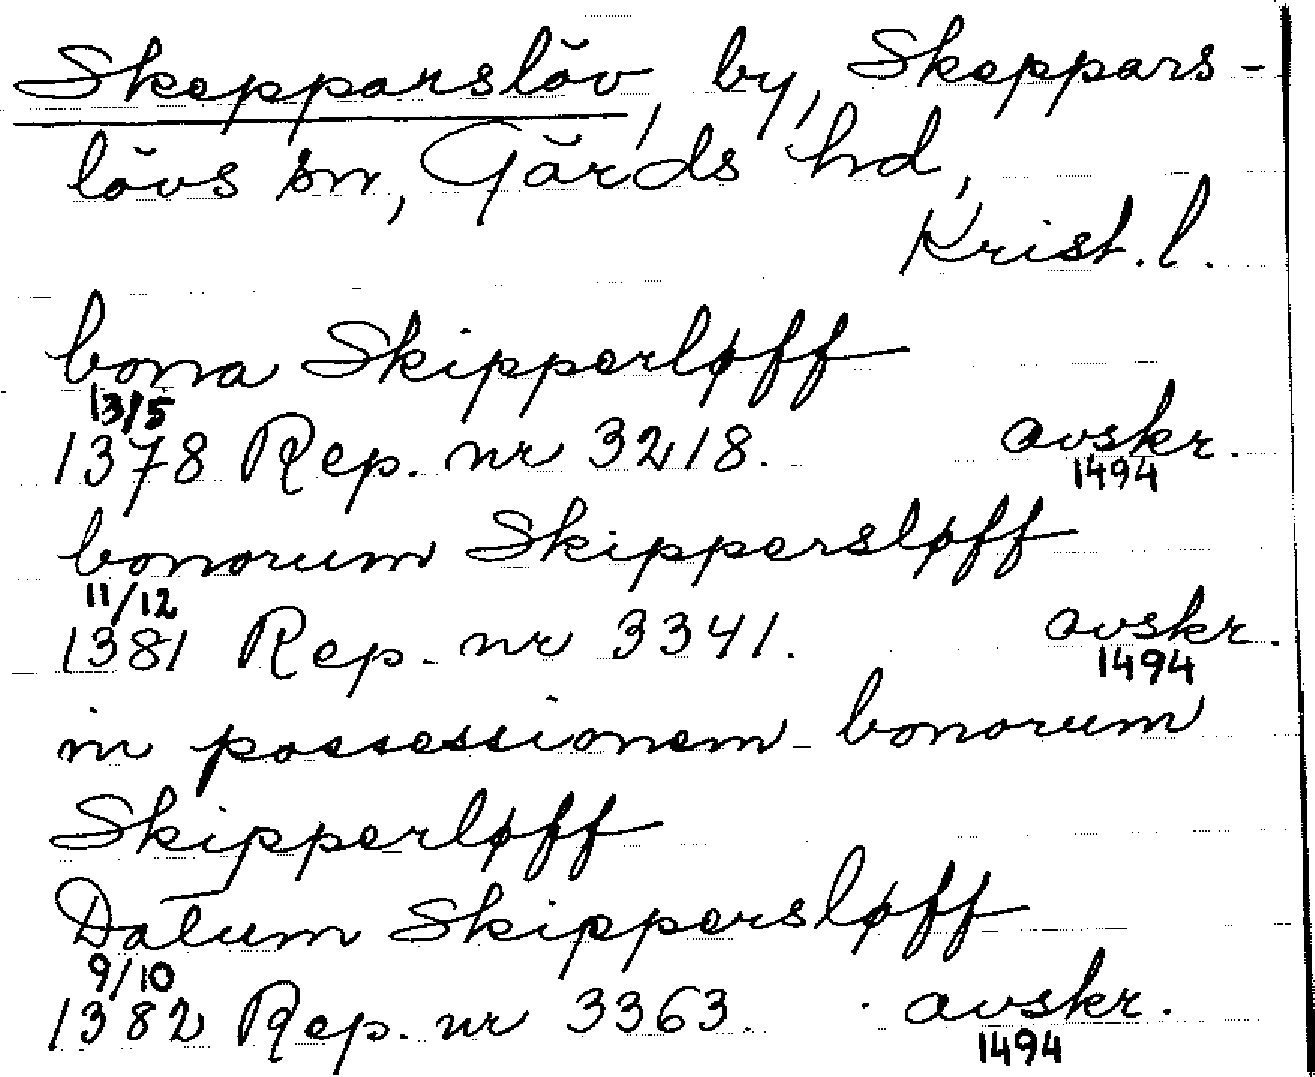 Skepparslöv, by, Skeppars-
lövs sn, Gärds hd,
Krist. l.
bona Skipperløff
13/5
1378 Rep. nr 3218. avskr.
1494
bonorum Skippersløff
11/12
1381 Rep. nr 3341. avskr.
1494
in possessionem bonorum
Skipperløff
Datum Skippersløff
9/10
1382 Rep. nr 3363. avskr.
1494